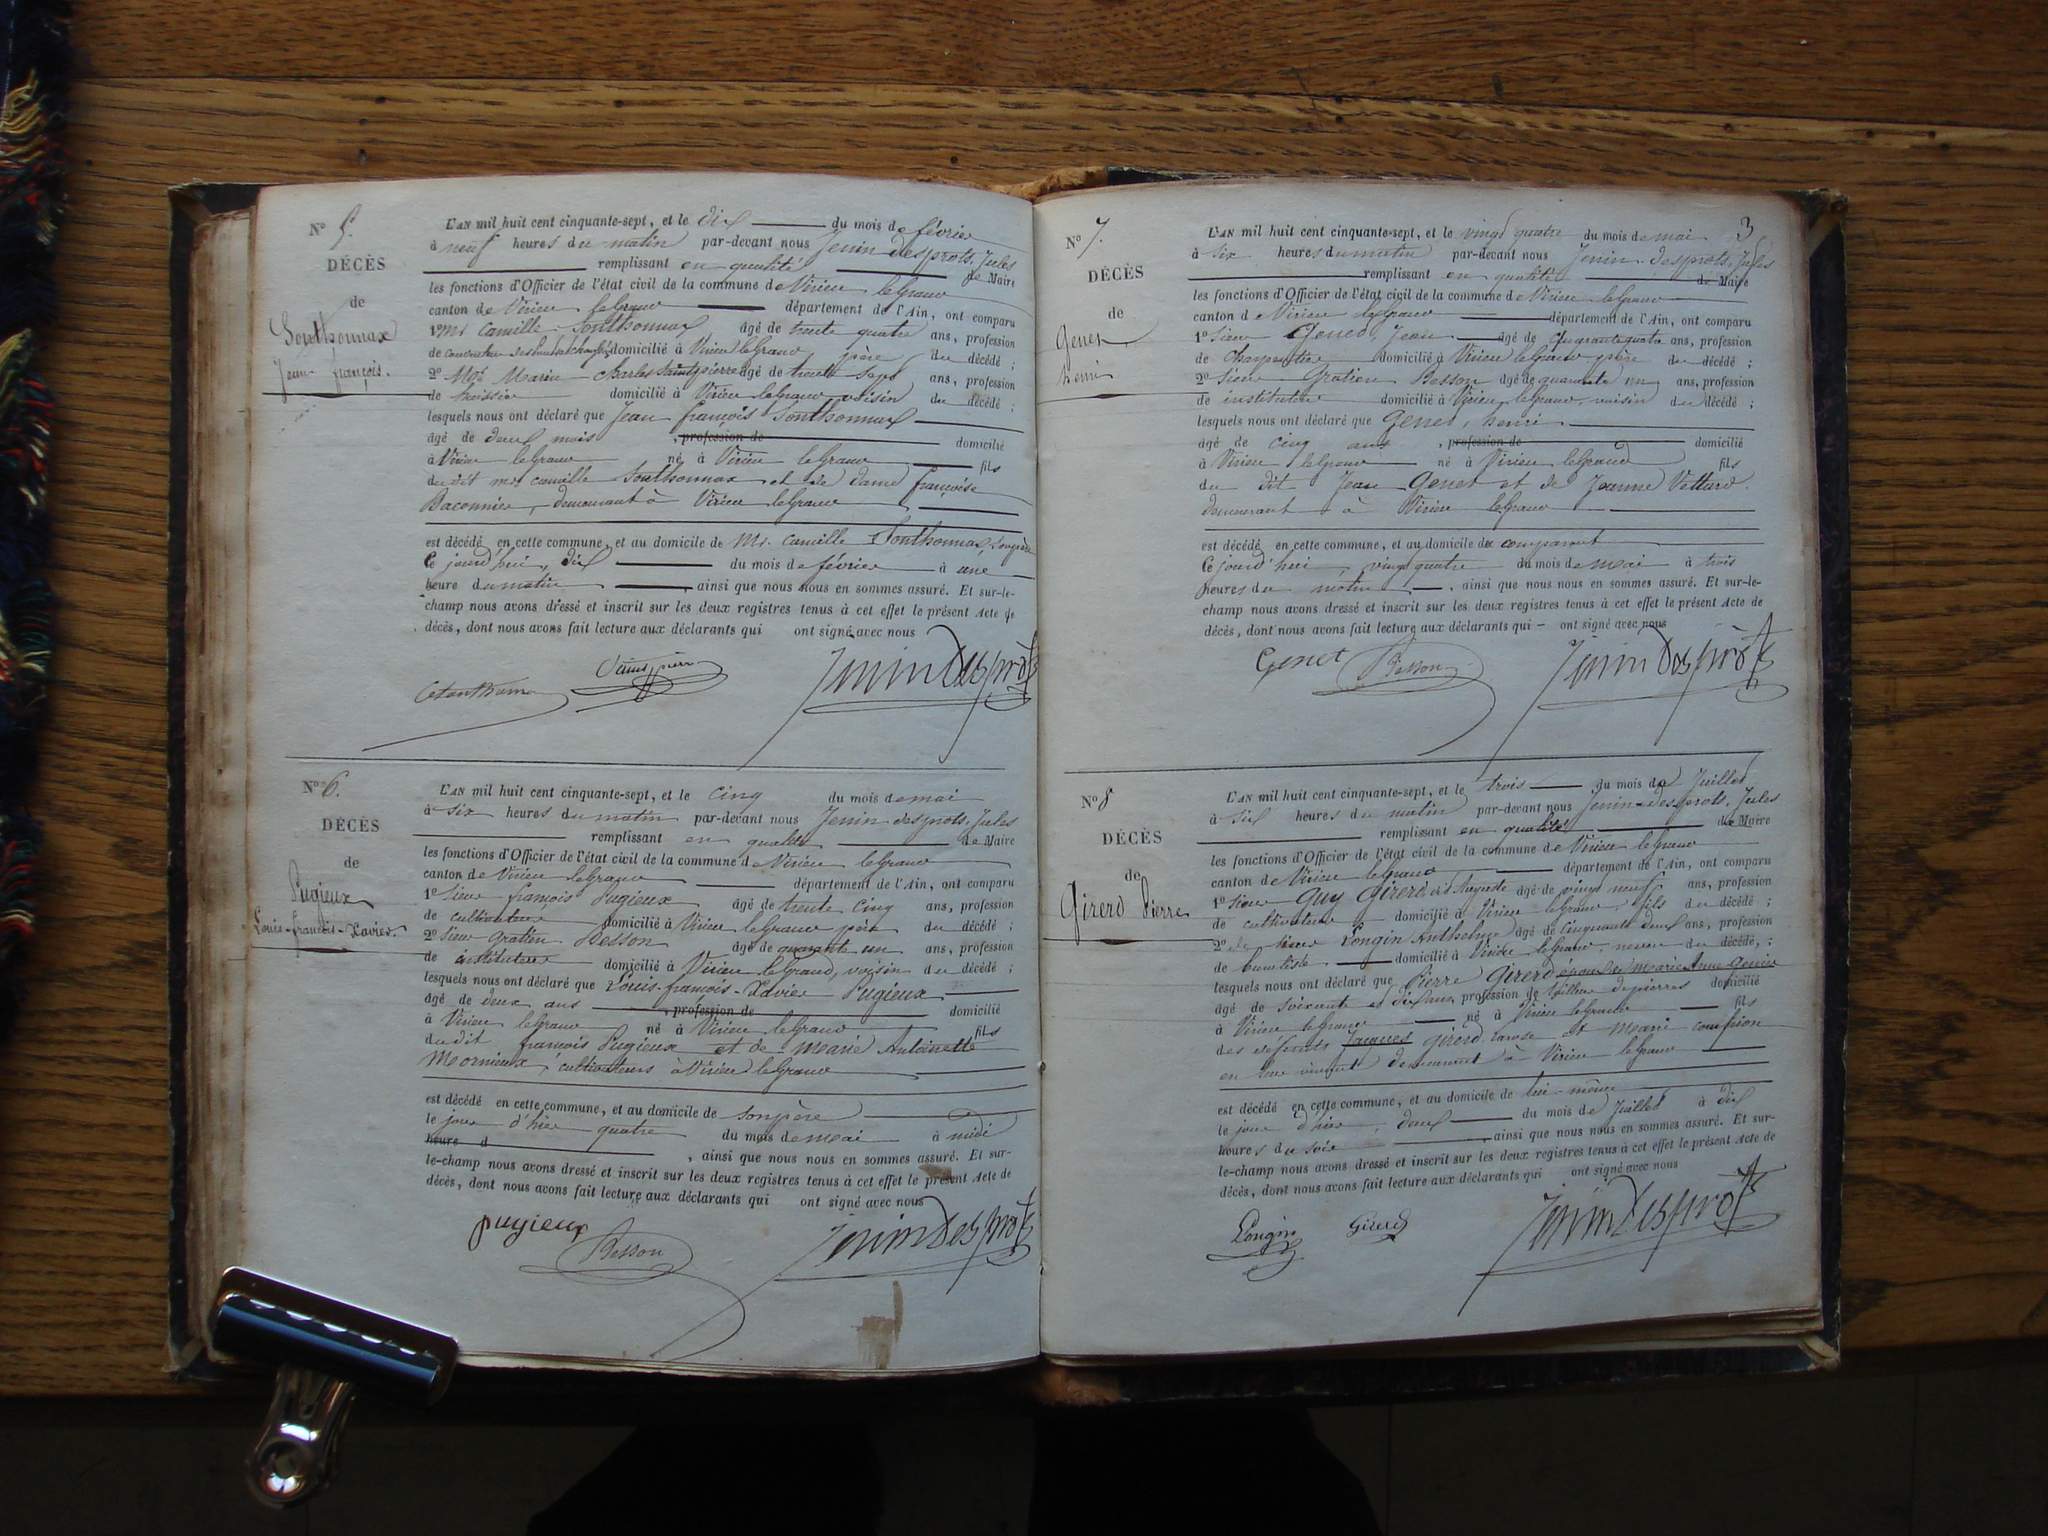 N° 5.
DÉCÈS
de
Sonthonnax
Jean françois.
L'AN mil huit cent cinquante-sept, et le dix du mois de février
à neuf heures du matin par-devant nous Jenin desprots, Jules
remplissant en qualité de Maire
les fonctions d'Officier de l'état civil de la commune de Virieu legrand
canton de Virieu legrand département de l'Ain, ont comparu
1° Mr Camille Sonthonnax âgé de trente quatre ans, profession
de domicilié à Virieu legrand père du décédé ;
2° Marin Charles Saintpierre âgé de trente sept ans, profession
de huissier domicilié à Virieu legrand voisin du décédé ;
lesquels nous ont déclaré que Jean françois Sonthonnax
âgé de deux mois , profession de domicilié
à Virieu legrand né à Virieu legrand fils
du dit mr camille Sonthonnax et de dame françoise
Baconnier, demeurant à Virieu legrand
est décédé en cette commune, et au domicile de Mr. camille Sonthonnax, son père
ce jourd'hui, dix du mois de février à une
heure du matin , ainsi que nous nous en sommes assuré. Et sur-le-
champ nous avons dressé et inscrit sur les deux registres tenus à cet effet le présent Acte de
décès, dont nous avons fait lecture aux déclarants qui ont signé avec nous
Saintpierre
Jenin Desprots
N° 6.
DÉCÈS
de
Pugieux
Louis-françois-Xavier.
L'AN mil huit cent cinquante-sept, et le cinq du mois de mai
à six heures du matin par-devant nous Jenin desprots, Jules
remplissant en qualité de Maire
les fonctions d'Officier de l'état civil de la commune de Virieu legrand
canton de Virieu legrand département de l'Ain, ont comparu
1° Sieur françois Pugieux âgé de trente cinq ans, profession
de cultivateur domicilié à Virieu legrand père du décédé ;
2° Sieur Gratien Besson âgé de quarante un ans, profession
de instituteur domicilié à Virieu legrand, voisin du décédé ;
lesquels nous ont déclaré que Louis-françois-Xavier Pugieux
âgé de deux ans , profession de domicilié
à Virieu legrand né à Virieu legrand fils
du dit françois Pugieux et de Marie Antoinette
Mornieux, cultivateurs à Virieu legrand
est décédé en cette commune, et au domicile de son père
le jour d'hier quatre du mois de mai à midi
heure d , ainsi que nous nous en sommes assuré. Et sur-
le-champ nous avons dressé et inscrit sur les deux registres tenus à cet effet le présent Acte de
décès, dont nous avons fait lecture aux déclarants qui ont signé avec nous
pugieux
Besson
Jenin Desprots
3
N° 7.
DÉCÈS
de
Genet
henri
L'AN mil huit cent cinquante-sept, et le vingt quatre du mois de mai
à six heures du matin par-devant nous Jenin-desprots, Jules
remplissant en qualité de Maire
les fonctions d'Officier de l'état cigil de la commune de Virieu legrand
canton d e Virieu legrand département de l'Ain, ont comparu
1° Sieur Genet, Jean âgé de quarante quatre ans, profession
de charpentier domicilié à Virieu legrand père du décédé ;
2° Sieur Gratien Besson âgé de quarante un ans, profession
de instituteur domicilié à Virieu legrand, voisin du décédé ;
lesquels nous ont déclaré que Genet, henri
âgé de cinq ans , profession de domicilié
à Virieu legrand né à Virieu legrand fils
du dit Jean Genet et de Jeanne Vettard.
demeurant à Virieu legrand
est décédé en cette commune, et au domicile du comparant
ce jourd'hui, vingt quatre du mois de mai à trois
heures du matin , ainsi que nous nous en sommes assuré. Et sur-le-
champ nous avons dressé et inscrit sur les deux registres tenus à cet effet le présent Acte de
décès, dont nous avons fait lecture aux déclarants qui ont signé avec nous
Genet
Besson
Jenin Desprots
N° 8
DÉCÈS
de
Girerd Pierre
L'AN mil huit cent cinquante-sept, et le trois du mois de Juillet
à six heures du matin par-devant nous Jenin-desprots, Jules
remplissant en qualité de Maire
les fonctions d'Officier de l'état civil de la commune de Virieu legrand
canton de Virieu legrand département de l'Ain, ont comparu
1° Sieur Guy Girerd dit Auguste âgé de vingt neuf ans, profession
de cultivateur domicilié à Virieu legrand, fils du décédé ;
2° Longin Anthelme âgé de cinquante deux ans, profession
de domicilié à Virieu legrand, neveu du décédé, ;
lesquels nous ont déclaré que Pierre Girerd époux de Marie Anne
âgé de soixante et dix ans, profession de tailleur de pierres domicilié
à Virieu legrand né à Virieu legrand fils
des défunts Jacques Girerd et Marie
en leur vivant demeurant à Virieu legrand
est décédé en cette commune, et au domicile de lui-même
le jour d'hier, deux du mois de Juillet à dix
heures du soir , ainsi que nous nous en sommes assuré. Et sur-
le-champ nous avons dressé et inscrit sur les deux registres tenus à cet effet le présent Acte de
décès, dont nous avons fait lecture aux déclarants qui ont signé avec nous
Longin
Girerd
Jenin Desprots